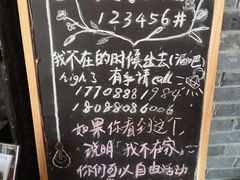 123456#
我不在的时候出去(酒吧
high) 有事请call
17708881984
18088086006
如果你看到这个
说明「我不在家」
你们可以自由活动